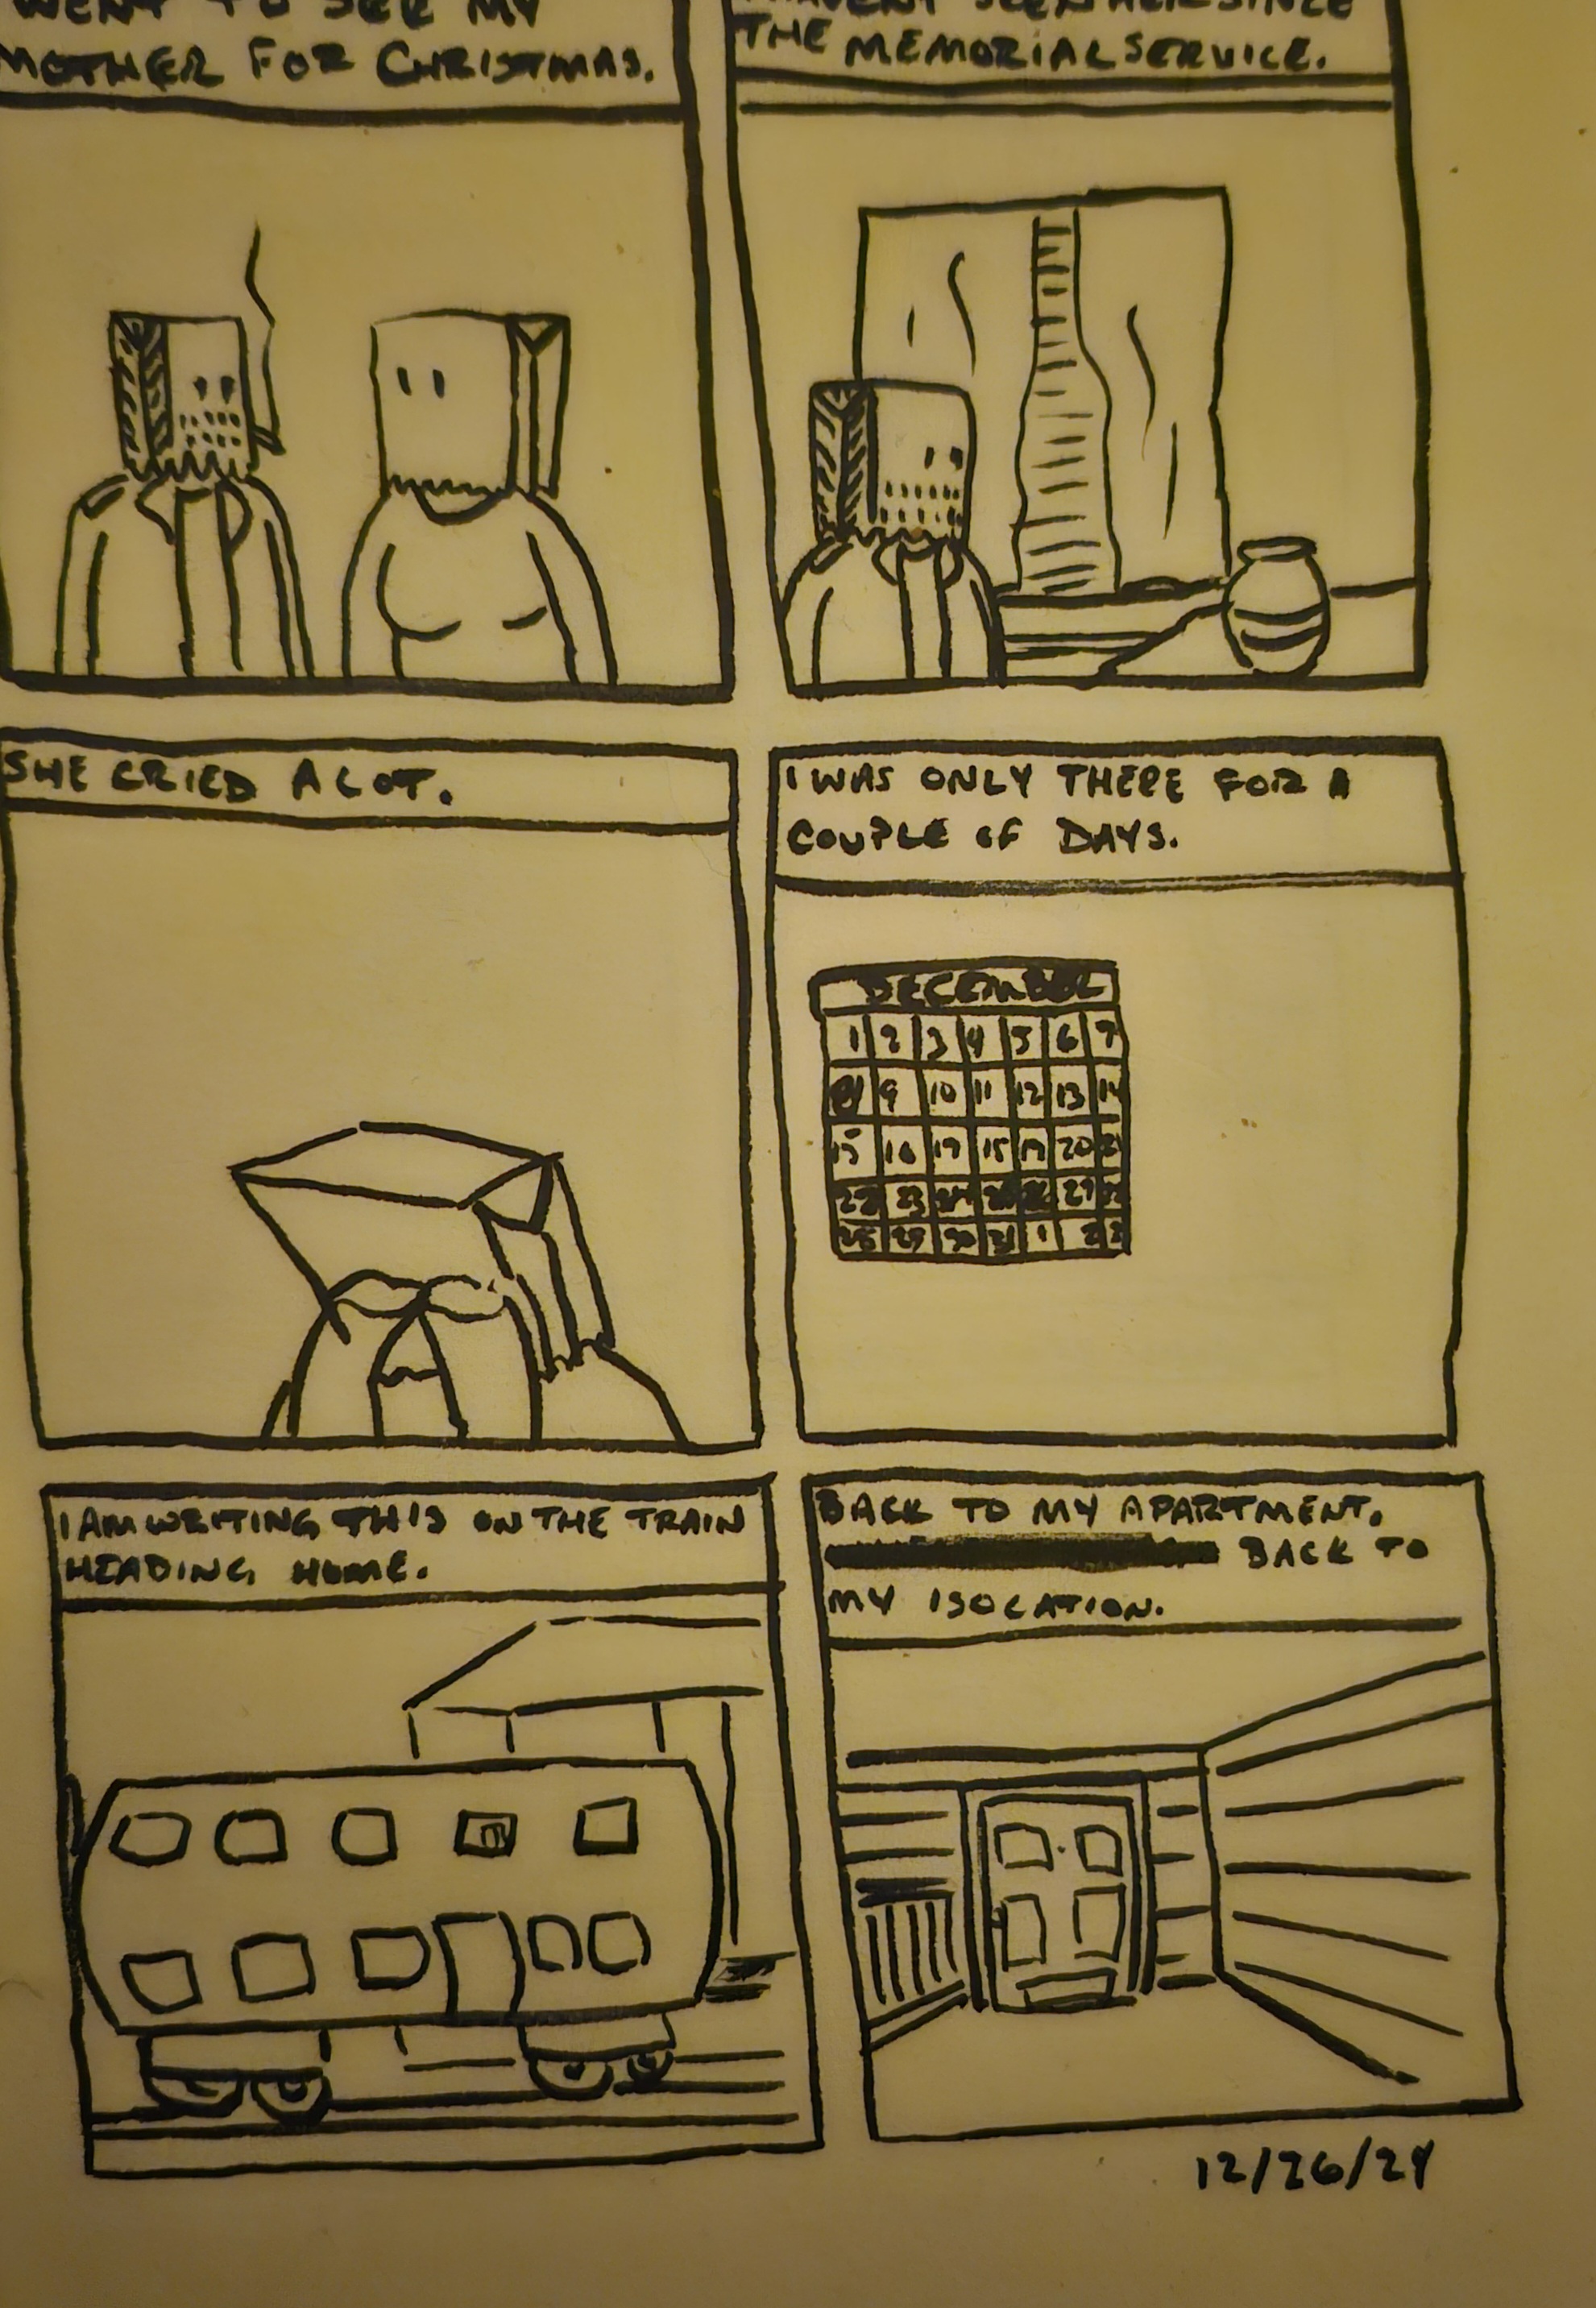 WENT TO SEE MY
MOTHER FOR CHRISTMAS.
HAVEN'T SEEN HER SINCE
THE MEMORIAL SERVICE.
SHE CRIED A LOT.
I WAS ONLY THERE FOR A
COUPLE OF DAYS.
DECEMBER
1 2 3 4 5 6 7
9 10 11 12 13 14
15 16 17 18 19 20 21
22 23 24 27
28 29 30 31 1 2
I AM WRITING THIS ON THE TRAIN
HEADING HOME.
BACK TO MY APARTMENT.
BACK TO
MY ISOLATION.
12/26/24